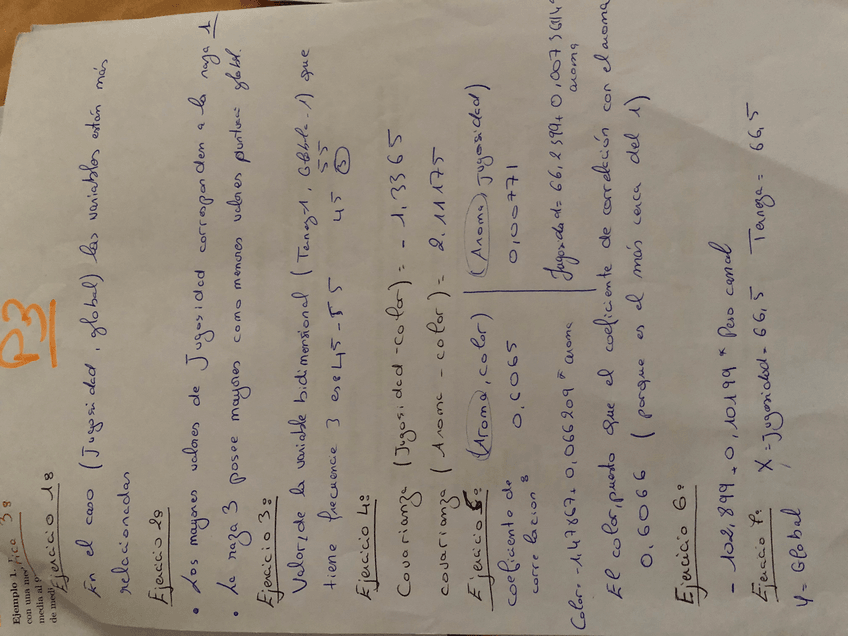 P3
Ejemplo 1.
con una me
media al
de medi
Ejercicio 1:
En el caso (Jugosidad, global) las variables están más
relacionadas
Ejercicio 2:
• Los mayores valores de Jugosidad corresponden a la raza 1
• La raza 3 posee mayores como menores valores puntuac global.
Ejercicio 3:
Valor/de la variable bidimensional (Terneza-1, Globla-1) que
tiene frecuencia 3 es: 45-55 45 55
3
Ejercicio 4:
Covarianza (Jugosidad-color) = -1,3365
covarianza (Aroma - color) = 2,11175
Ejercicio 5: (Aroma, color) (Aroma, jugosidad)
coeficiente de 0,6065 0,00771
correlacion:
Color= -1,47867+0,066209*aroma Jugosidad= 66,2399+0,00736114*
aroma
El color, puesto que el coeficiente de correlación con el aroma
0,6066 (porque es el más cerca del 1)
Ejercicio 6:
-102,899+0,10199* Peso canal
Ejercicio 7: X = Jugosidad = 66,5 Terneza = 66,5
Y = Global